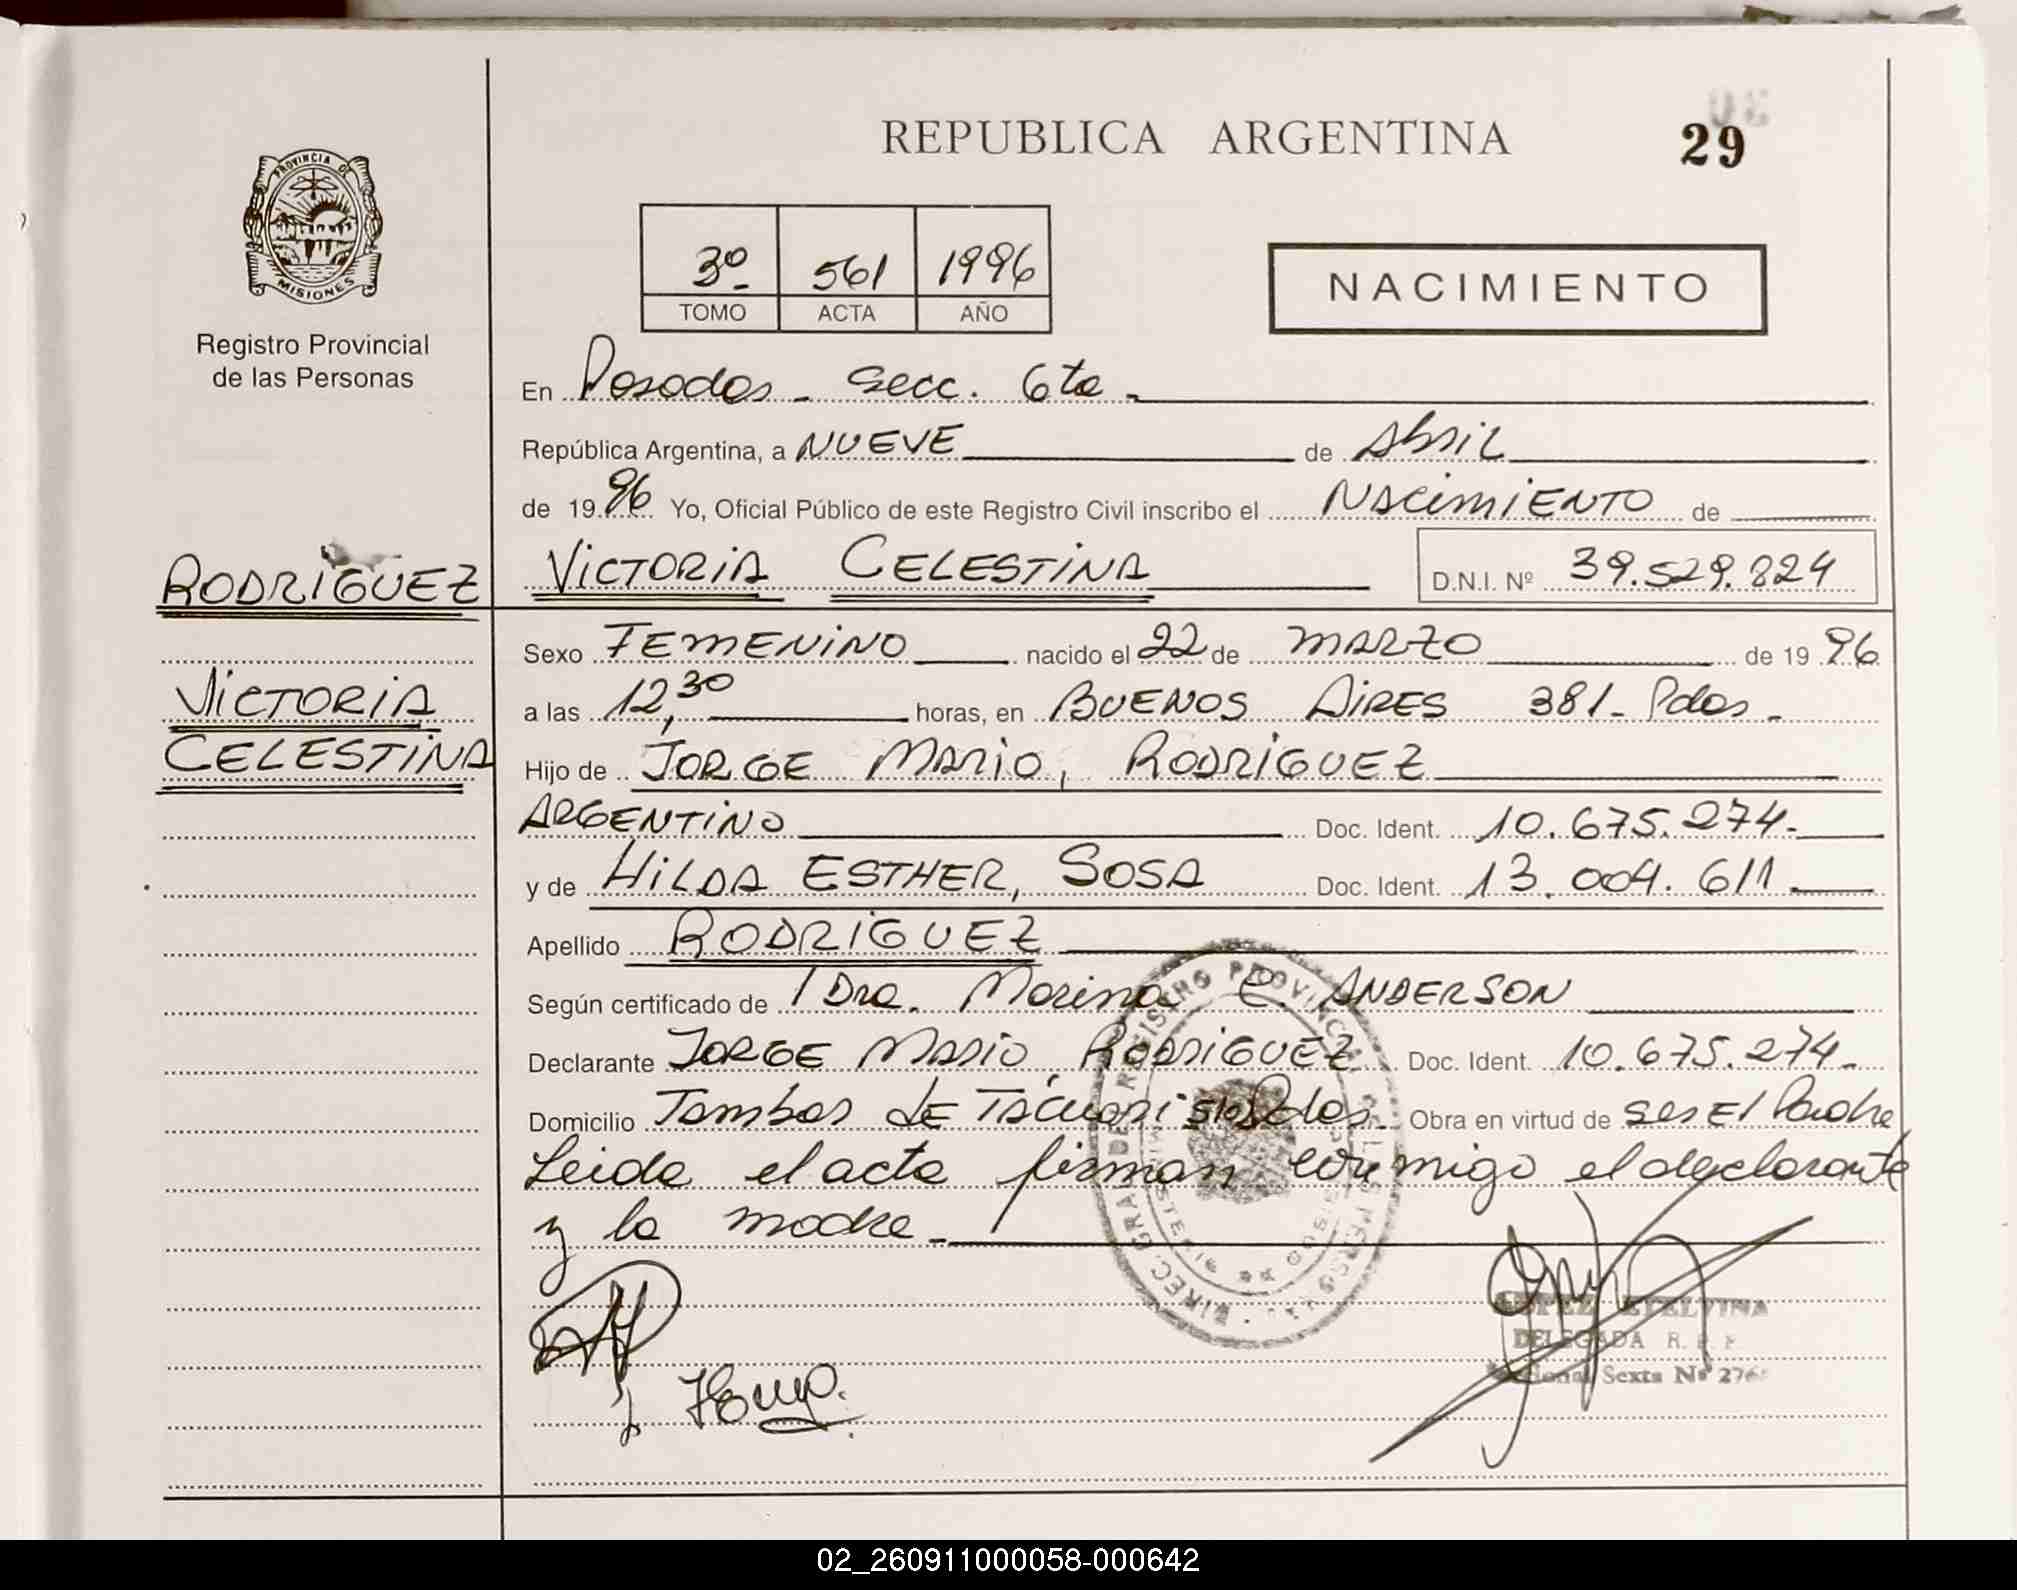 REPUBLICA ARGENTINA
29
PROVINCIA DE
MISIONES
Registro Provincial
de las Personas
3º 561 1996
TOMO ACTA AÑO
NACIMIENTO
En Posadas - Secc. 6ta -
República Argentina, a NUEVE de Abril
de 1996 Yo, Oficial Público de este Registro Civil inscribo el NACIMIENTO de
RODRIGUEZ
VICTORIA CELESTINA D.N.I. Nº 39.529.824
Sexo FEMENINO nacido el 22 de MARZO de 1996
VICTORIA
a las 12,30 horas, en BUENOS AIRES 381- Pdas -
CELESTINA
Hijo de JORGE MARIO, RODRIGUEZ
ARGENTINO Doc. Ident. 10.675.274.-
y de HILDA ESTHER, SOSA Doc. Ident. 13.004.611
Apellido RODRIGUEZ
Según certificado de Dra. Marina E. ANDERSON
Declarante JORGE MARIO, RODRIGUEZ Doc. Ident. 10.675.274.-
Domicilio Tambor de Tacuari Pdas. Obra en virtud de ser El Padre
Leida el acta firman conmigo el declarante
y la madre -
ETELVINA
DELEGADA R. P. P.
Sexta Nº 276
02_260911000058-000642